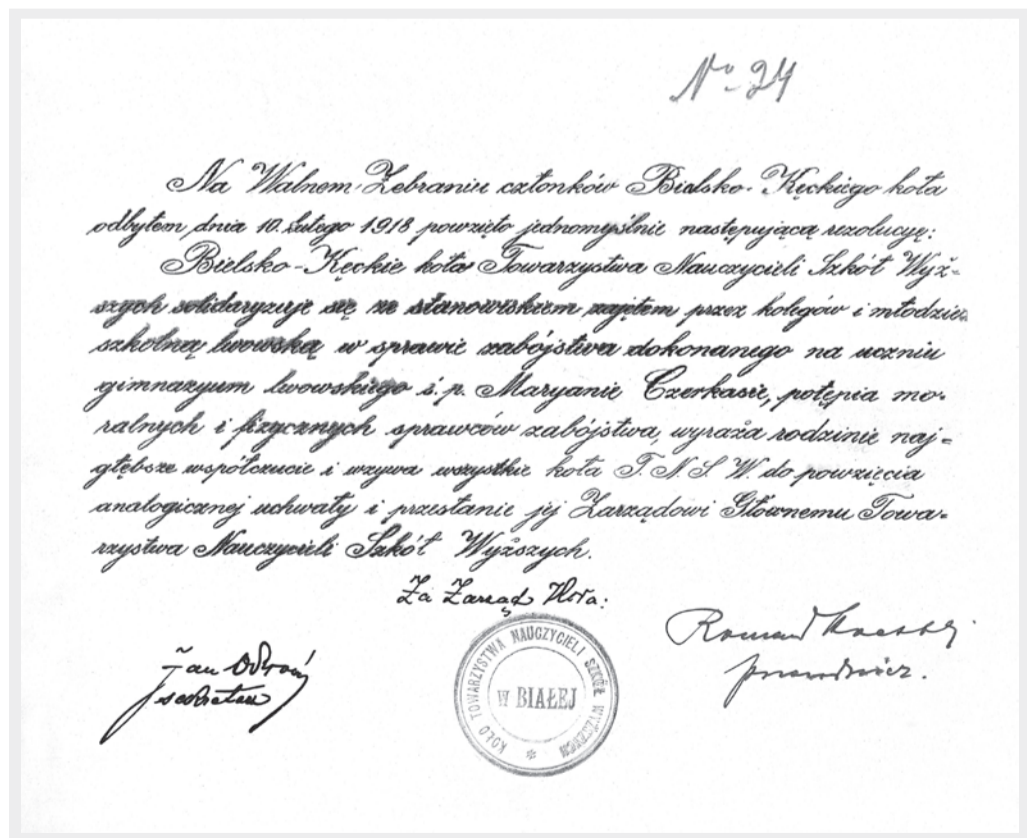 No 24
Na Walnem Zebraniu członków Bielsko-Kęckiego koła
odbytem dnia 10. lutego 1918 powzięto jednomyślnie następującą rezolucyę:
Bielsko-Kęckie koło Towarzystwa Nauczycieli Szkół Wyż=
szych solidaryzuje się ze stanowiskiem zajętem przez kolegów i młodzież
szkolną lwowską w sprawie zabójstwa dokonanego na uczniu
gimnazyum lwowskiego ś. p. Maryanie Czerkasie, potępia mo-
ralnych i fizycznych sprawców zabójstwa, wyraża rodzinie naj=
głębsze współczucie i wzywa wszystkie koła T. N. S. W. do powzięcia
analogicznej uchwały i przesłanie jej Zarządowi Głównemu Towa-
rzystwa Nauczycieli Szkół Wyższych.
Za Zarząd Koła:
Jan
sekretarz
KOŁO TOWARZYSTWA NAUCZYCIELI SZKÓŁ WYŻSZYCH
W BIAŁEJ
Roman
przewodniczący.